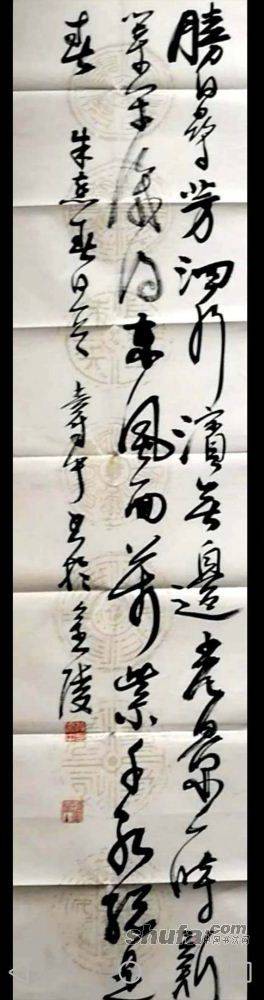 勝日尋芳泗水濱無邊光景一時新
等閒識得東風面萬紫千紅總是
春 朱熹春日 壽 書於金陵
shufa.com
中国书法网